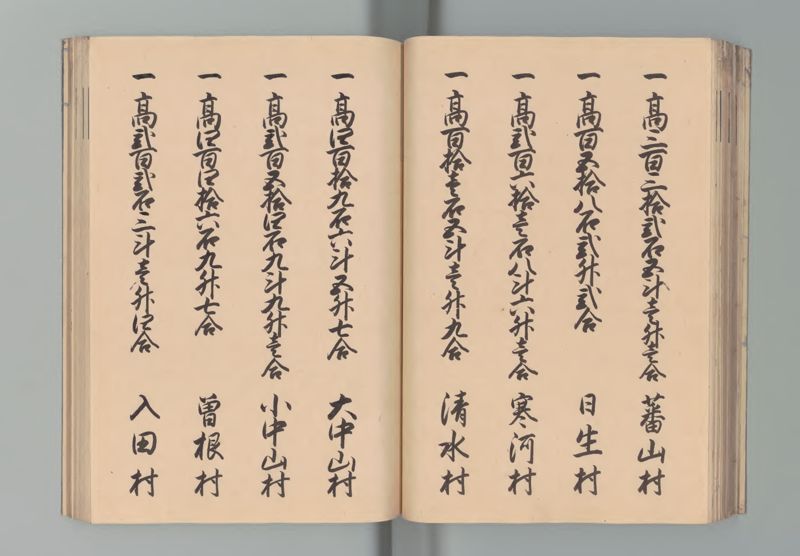 一 高三百三拾弐石五斗壱升壱合 蕃山村
一 高百五拾八石弐升弐合 日生村
一 高弐百六拾壱石八斗六升壱合 寒河村
一 高百拾壱石五斗壱升九合 清水村
一 高四百拾九石六斗五升七合 大中山村
一 高弐百五拾四石九斗九升壱合 小中山村
一 高四百四拾六石九升七合 曽根村
一 高弐百弐石三斗壱升四合 入田村